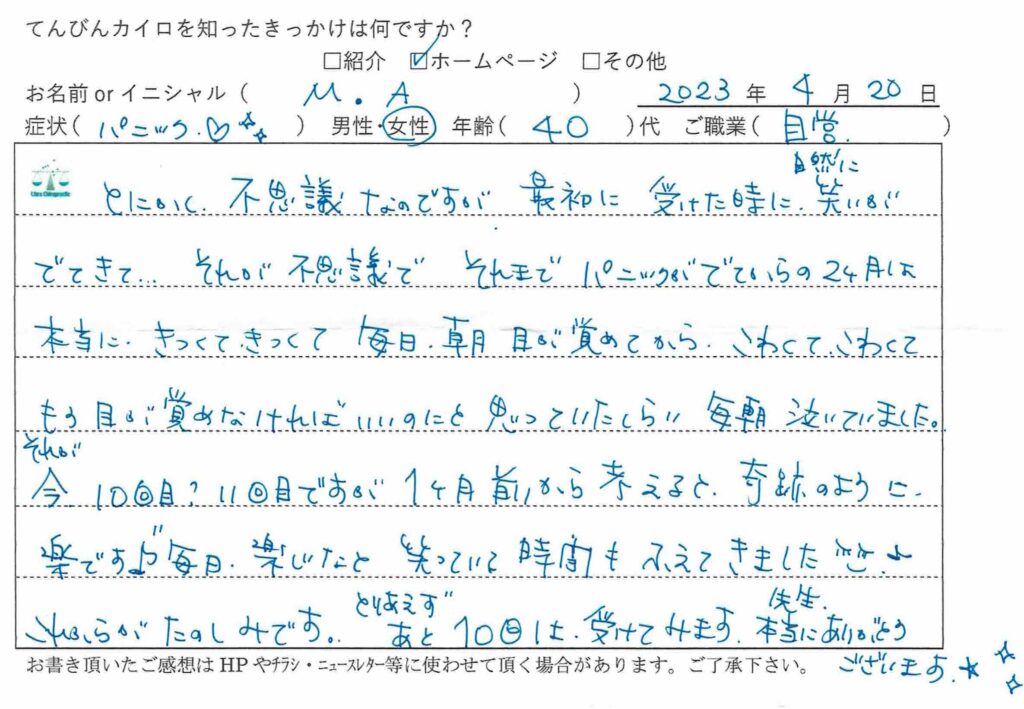 てんびんカイロを知ったきっかけは何ですか？
□紹介 ☑ホームページ □その他
お名前orイニシャル（ M. A ） 2023 年 4 月 20 日
症状（ パニック.♡ ） 男性・女性 年齢（ 40 ）代 ご職業（ 自営. ）
Libra Chiropractic
とにかく、不思議なのですが 最初に 受けた時に、自然に笑いが
でてきて… それが不思議で それまで パニックがでてからの2ヶ月は
本当に、きつくて、きつくて 毎日、朝 目が覚めてから、こわくて、こわくて
もう目が覚めなければいいのにと思っていたくらい 毎朝 泣いていました。
それが
今 10回目？11回目ですが 1ヶ月前から考えると、奇跡のように、
楽です♪" 毎日、楽しいなと 笑っている時間もふえてきました
これからがたのしみです。とりあえず あと10回は、受けてみます。先生、本当にありがとう
ございます。★
お書き頂いたご感想はHPやﾁﾗｼ・ﾆｭｰｽﾚﾀｰ等に使わせて頂く場合があります。ご了承下さい。